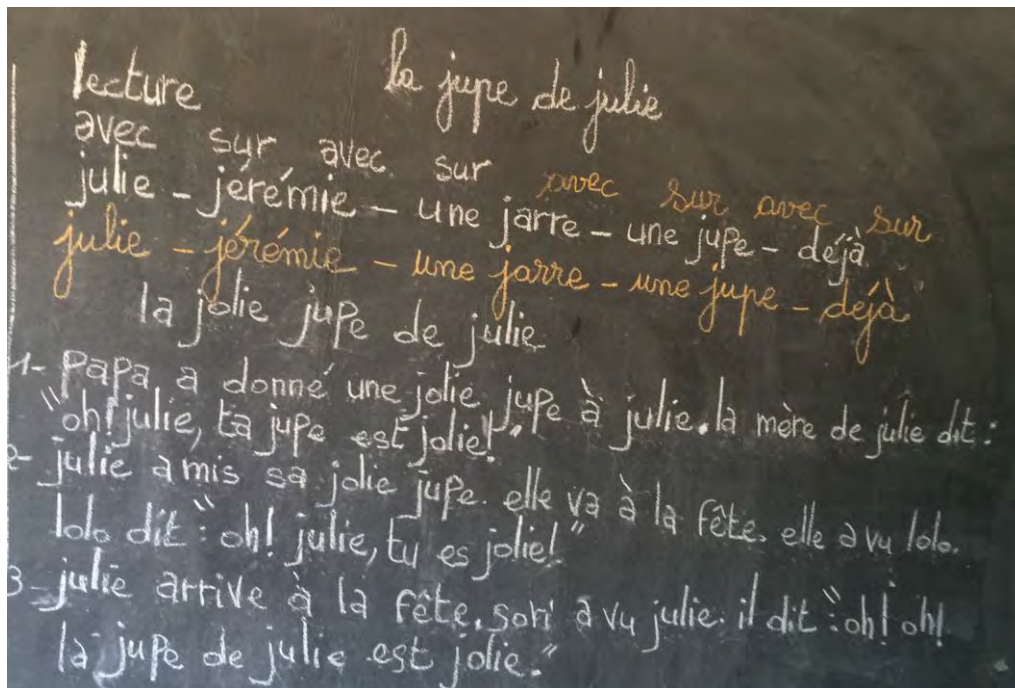 lecture la jupe de julie
avec sur avec sur avec sur avec sur
julie - jérémie - une jarre - une jupe - déjà
julie - jérémie - une jarre - une jupe - déjà
la jolie jupe de julie
1- Papa a donné une jolie jupe à julie. la mère de julie dit :
"oh! julie, ta jupe est jolie!"
2- julie a mis sa jolie jupe. elle va à la fête. elle a vu lolo.
lolo dit : "oh! julie, tu es jolie!"
3- julie arrive à la fête. sori a vu julie. il dit : "oh! oh!
la jupe de julie est jolie."